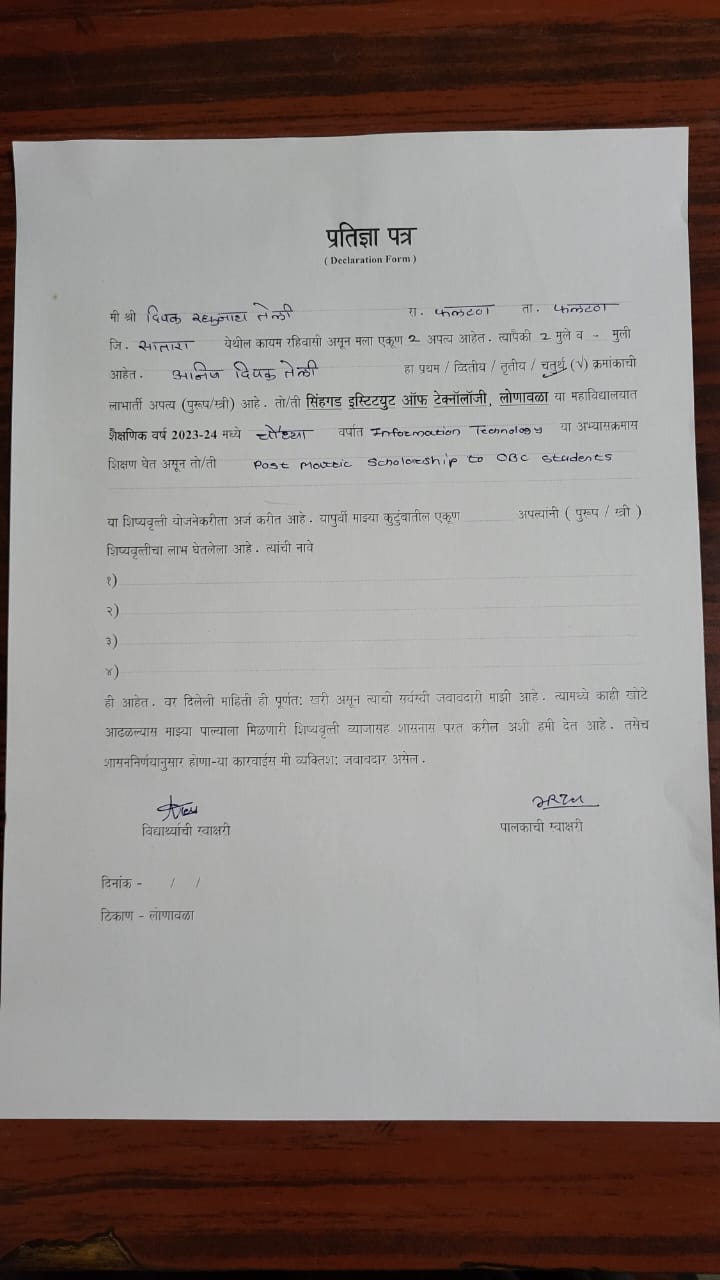 प्रतिज्ञा पत्र
( Declaration Form )
मी श्री दिपक रघुनाथ तेली रा. फलटण ता. फलटण
जि. सातारा येथील कायम रहिवासी असून मला एकूण 2 अपत्य आहेत. त्यापैकी 2 मुले व - मुली
आहेत. दिपक तेली हा प्रथम / व्दितीय / तृतीय / चतुर्थ (√) क्रमांकाची
लाभार्ती अपत्य (पुरूप/स्त्री) आहे. तो/ती सिंहगड इस्टिटयुट ऑफ टेक्नॉलॉजी, लोणावळा या महाविद्यालयात
शैक्षणिक वर्ष 2023-24 मध्ये चौथ्या वर्षात Information Technology या अभ्यासक्रमास
शिक्षण घेत असून तो/ती Post Matric Scholarship to OBC Students
या शिष्यवृत्ती योजनेकरीता अर्ज करीत आहे. यापुर्वी माझ्या कुटुंवातील एकूण अपत्यांनी ( पुरूप / स्त्री )
शिष्यवृत्तीचा लाभ घेतलेला आहे. त्यांची नावे
१)
२)
३)
४)
ही आहेत. वर दिलेली माहिती ही पूर्णत: खरी असून त्याची सर्वस्वी जवावदारी माझी आहे. त्यामध्ये काही खोटे
आढळल्यास माझ्या पाल्याला मिळणारी शिष्यवृत्ती व्याजासह शासनास परत करील अशी हमी देत आहे. तसेच
शासननिर्णयानुसार होणा-या कारवाईस मी व्यक्तिश: जवावदार असेल.
विद्यार्थ्याची स्वाक्षरी पालकाची स्वाक्षरी
दिनांक - / /
ठिकाण - लोणावळा